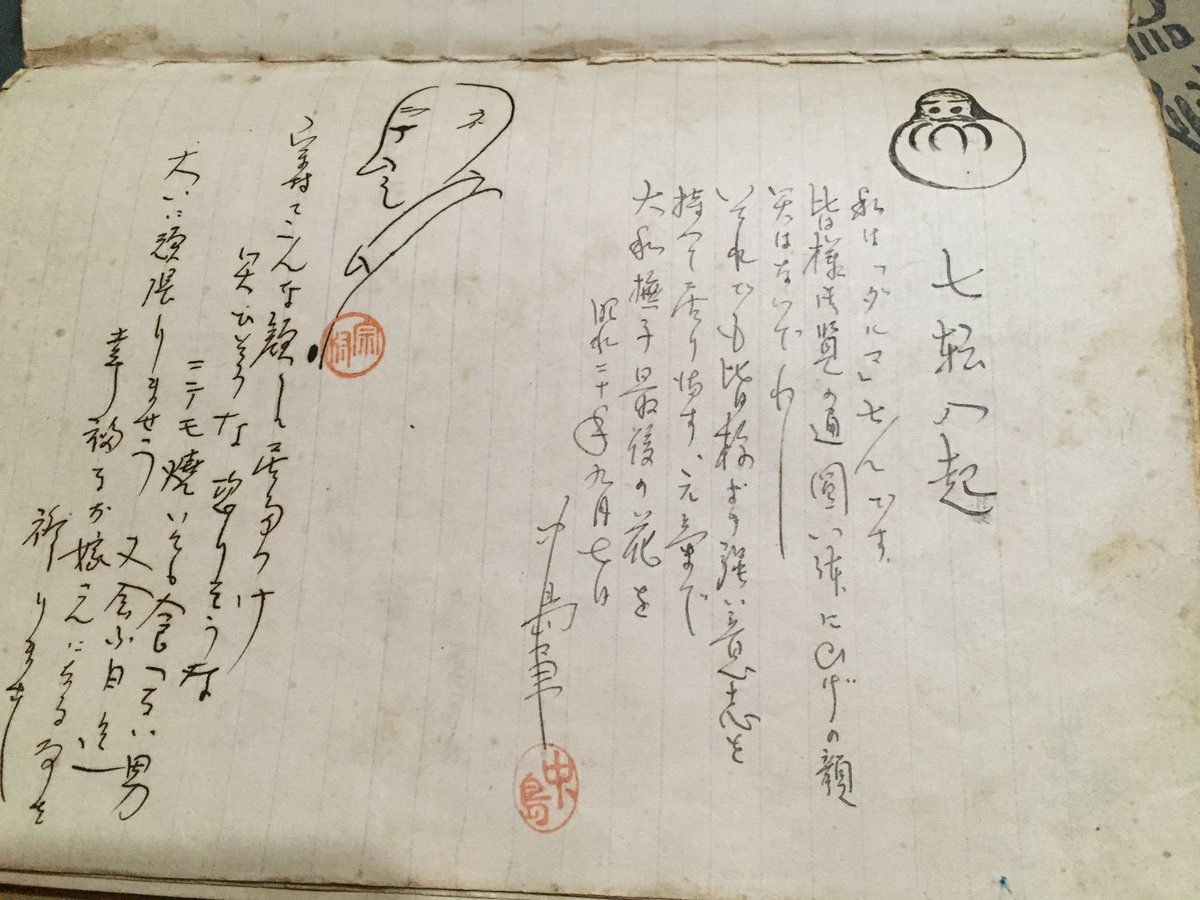 七転八起
私は「ダルマ」せんです
皆様御覧の通圓い体にひげの顔
笑はないでね
いそれでも皆様より強い意志を
持って居り時す、元氣で
大和撫子最後の花を
昭和二十年九月七日
中島
中島
宗村
宗村てこんな顔し居るつけ
笑ひそうな怒りそうな
ニテモ燒いそも食つてい男
大いに頑張りませう
又会ふ日迄
幸福なお嫁さんになる事を
祈ります